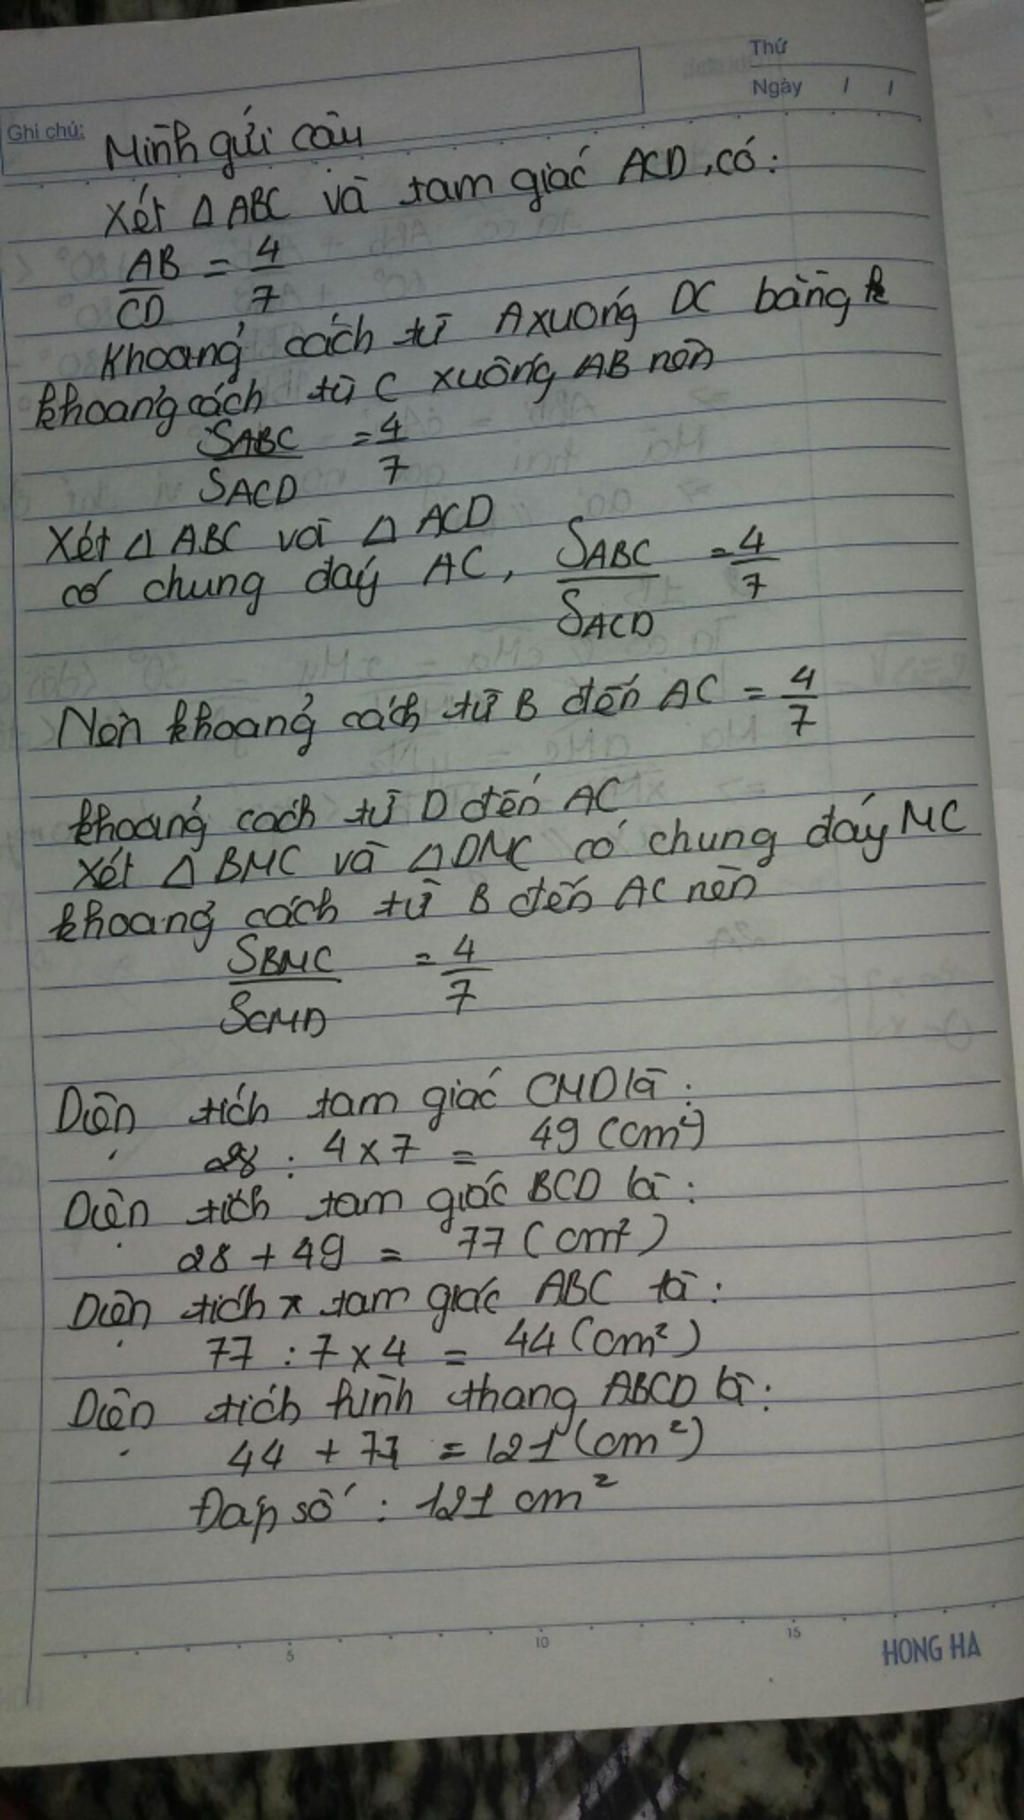 Thứ
Ngày / /
Ghi chú:
Mình gửi cậu
Xét Δ ABC và tam giác ACD, có:
AB/CD = 4/7
Khoảng cách từ A xuống DC bằng k
khoảng cách từ C xuống AB nên
SABC/SACD = 4/7
Xét Δ ABC và Δ ACD
có chung đáy AC, SABC/SACD = 4/7
Nên khoảng cách từ B đến AC = 4/7
khoảng cách từ D đến AC
Xét Δ BMC và Δ DMC có chung đáy MC
khoảng cách từ B đến AC nên
SBMC/SCMD = 4/7
Diện tích tam giác CMD là:
28 : 4 x 7 = 49 (cm²)
Diện tích tam giác BCD là:
28 + 49 = 77 (cm²)
Diện tích tam giác ABC là:
77 : 7 x 4 = 44 (cm²)
Diện tích hình thang ABCD là:
44 + 77 = 121 (cm²)
Đáp số: 121 cm²
5 10 15
HONG HA